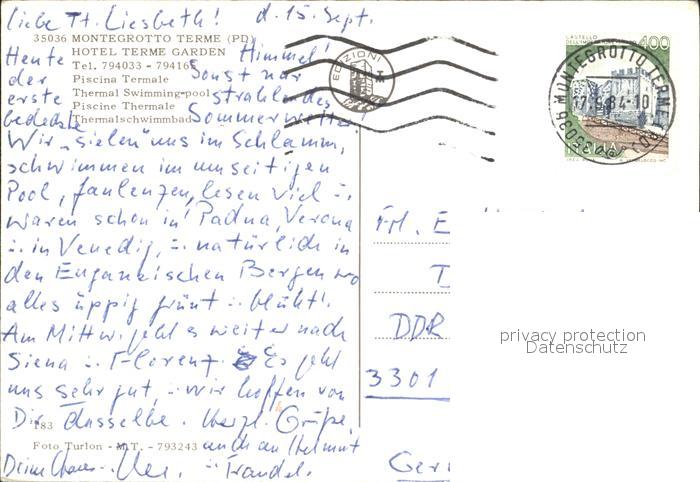 Liebe Tt. Liesbeth! d. 15. Sept.
35036 MONTEGROTTO TERME (PD)
HOTEL TERME GARDEN
Tel. 794033 - 79416
Piscina Termale
Thermal Swimming-pool
Piscine Thermale
Thermalschwimmbad
Heute der erste bedeckte Himmel!
Sonst nur strahlendes Sommerwetter.
Wir „sielen" uns im Schlamm,
schwimmen im umseitigen
Pool, faulenzen, lesen viel u.
waren schon in Padua, Verona
u. in Venedig, u. natürlich in
den Euganeischen Bergen wo
alles üppig grünt u. blüht!
Am Mittw. geht es weiter nach
Siena u. Florenz. Es geht
uns sehr gut, u. wir hoffen von
Dir dasselbe. Herzl. Grüße,
auch an Helmut
Deine u. Traudel.
183
Foto Turlon - M.T. - 793243
EDIZIONI
CASTELLO
400
ITALIA
35036 MONTEGROTTO TERME (PD)
17.9.84-10
Frl. E
DDR
3301
Ger
privacy protection
Datenschutz